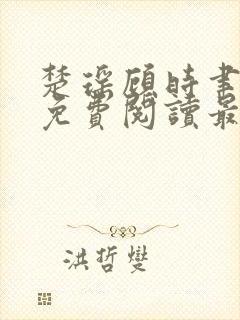 楚瑤顧時書
免費閱讀最
洪哲燮